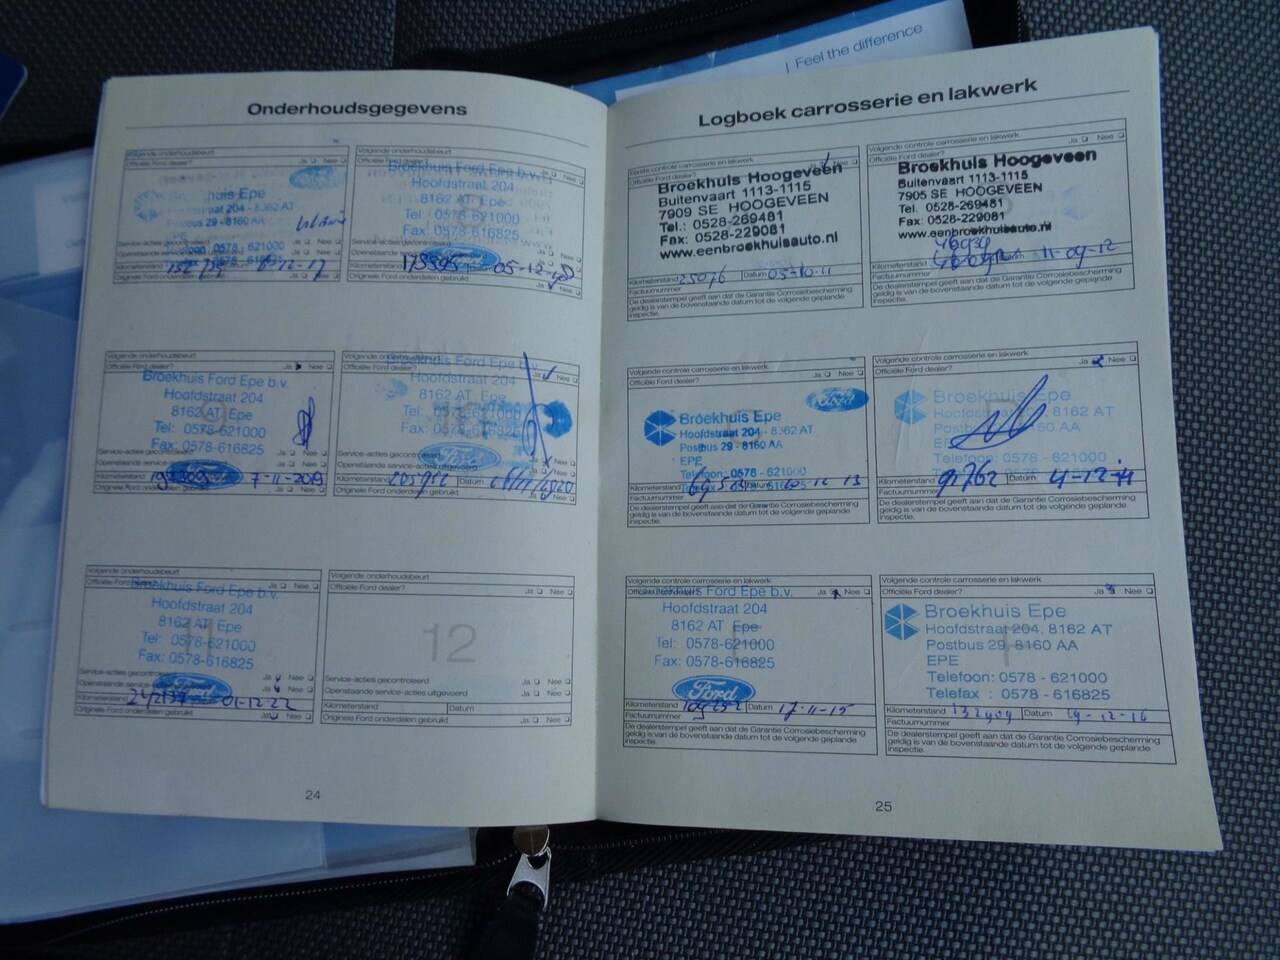 | Feel the difference
Onderhoudsgegevens
Volgende onderhoudsbeurt
Officiële Ford dealer? Ja Nee
huis Epe
204 - 8162 AT
29 - 8160 AA
EPE
0578 - 621000
Service-acties gecontroleerd
Kilometerstand
Originele Ford onderdelen gebruikt Ja Nee
Volgende onderhoudsbeurt
Broekhuis Ford Epe b.v.
Hoofdstraat 204
8162 AT Epe
Tel: 0578-621000
Fax: 0578-616825
Ford
Kilometerstand 05-12-
Originele Ford onderdelen gebruikt Ja Nee
Volgende onderhoudsbeurt
Officiële Ford dealer? Ja Nee
Broekhuis Ford Epe b.v.
Hoofdstraat 204
8162 AT Epe
Tel: 0578-621000
Fax: 0578-616825
Service-acties gecontroleerd
Openstaande service-
Ford
Kilometerstand 7-11-2019
Originele Ford onderdelen gebruikt Ja Nee
Volgende onderhoudsbeurt
Broekhuis Ford Epe b.v.
Ja Nee
Hoofdstraat 204
8162 AT Epe
Tel: 0578-621000
Fax: 0578-616825
Service-acties gecontroleerd
Openstaande service-acties uitgevoerd
Ford
Kilometerstand 205912 Datum
Originele Ford onderdelen gebruikt Ja Nee
Volgende onderhoudsbeurt
Officiële Ford Ja Nee
Broekhuis Ford Epe b.v.
Hoofdstraat 204
8162 AT Epe
Tel: 0578-621000
Fax: 0578-616825
Service-acties gecontroleerd Ja Nee
Openstaande service- Ja Nee
Ford
Kilometerstand 242137 01-12-22
Originele Ford onderdelen gebruikt Ja Nee
Volgende onderhoudsbeurt
Officiële Ford dealer? Ja Nee
12
Service-acties gecontroleerd Ja Nee
Openstaande service-acties uitgevoerd Ja Nee
Kilometerstand Datum
Originele Ford onderdelen gebruikt Ja Nee
24
Logboek carrosserie en lakwerk
Eerste controle carrosserie en lakwerk
Officiële Ford dealer? Ja Nee
Broekhuis Hoogeveen
Buitenvaart 1113-1115
7909 SE HOOGEVEEN
Tel.: 0528-269481
Fax: 0528-229081
www.eenbroekhuisauto.nl
Kilometerstand 25076 Datum 05-10-11
Factuurnummer
De dealerstempel geeft aan dat de Garantie Corrosiebescherming
geldig is van de bovenstaande datum tot de volgende geplande
inspectie.
Volgende controle carrosserie en lakwerk
Officiële Ford dealer? Ja Nee
Broekhuis Hoogeveen
Buitenvaart 1113-1115
7905 SE HOOGEVEEN
Tel. 0528-269481
Fax: 0528-229081
www.eenbroekhuisauto.nl
Kilometerstand 11-09-12
Factuurnummer
De dealerstempel geeft aan dat de Garantie Corrosiebescherming
geldig is van de bovenstaande datum tot de volgende geplande
inspectie.
Volgende controle carrosserie en lakwerk
Officiële Ford dealer?
Ford
Broekhuis Epe
Hoofdstraat 204 - 8162 AT
Postbus 29 - 8160 AA
EPE
Telefoon: 0578 - 621000
Kilometerstand Datum 12 13
Factuurnummer
De dealerstempel geeft aan dat de Garantie Corrosiebescherming
geldig is van de bovenstaande datum tot de volgende geplande
inspectie.
Volgende controle carrosserie en lakwerk
Officiële Ford dealer? Ja Nee
Broekhuis Epe
8162 AT
60 AA
EPE
Telefoon: 0578 - 621000
Kilometerstand 91762 4-12-14
Factuurnummer
De dealerstempel geeft aan dat de Garantie Corrosiebescherming
geldig is van de bovenstaande datum tot de volgende geplande
inspectie.
Volgende controle carrosserie en lakwerk
Officiële Ford dealer? Ja Nee
Broekhuis Ford Epe b.v.
Hoofdstraat 204
8162 AT Epe
Tel: 0578-621000
Fax: 0578-616825
Ford
Kilometerstand 109252 Datum 17-11-15
Factuurnummer
De dealerstempel geeft aan dat de Garantie Corrosiebescherming
geldig is van de bovenstaande datum tot de volgende geplande
inspectie.
Volgende controle carrosserie en lakwerk
Officiële Ford dealer? Ja Nee
Broekhuis Epe
Hoofdstraat 204, 8162 AT
Postbus 29, 8160 AA
EPE
Telefoon: 0578 - 621000
Telefax : 0578 - 616825
Kilometerstand 132909 Datum 19-12-16
Factuurnummer
De dealerstempel geeft aan dat de Garantie Corrosiebescherming
geldig is van de bovenstaande datum tot de volgende geplande
inspectie.
25